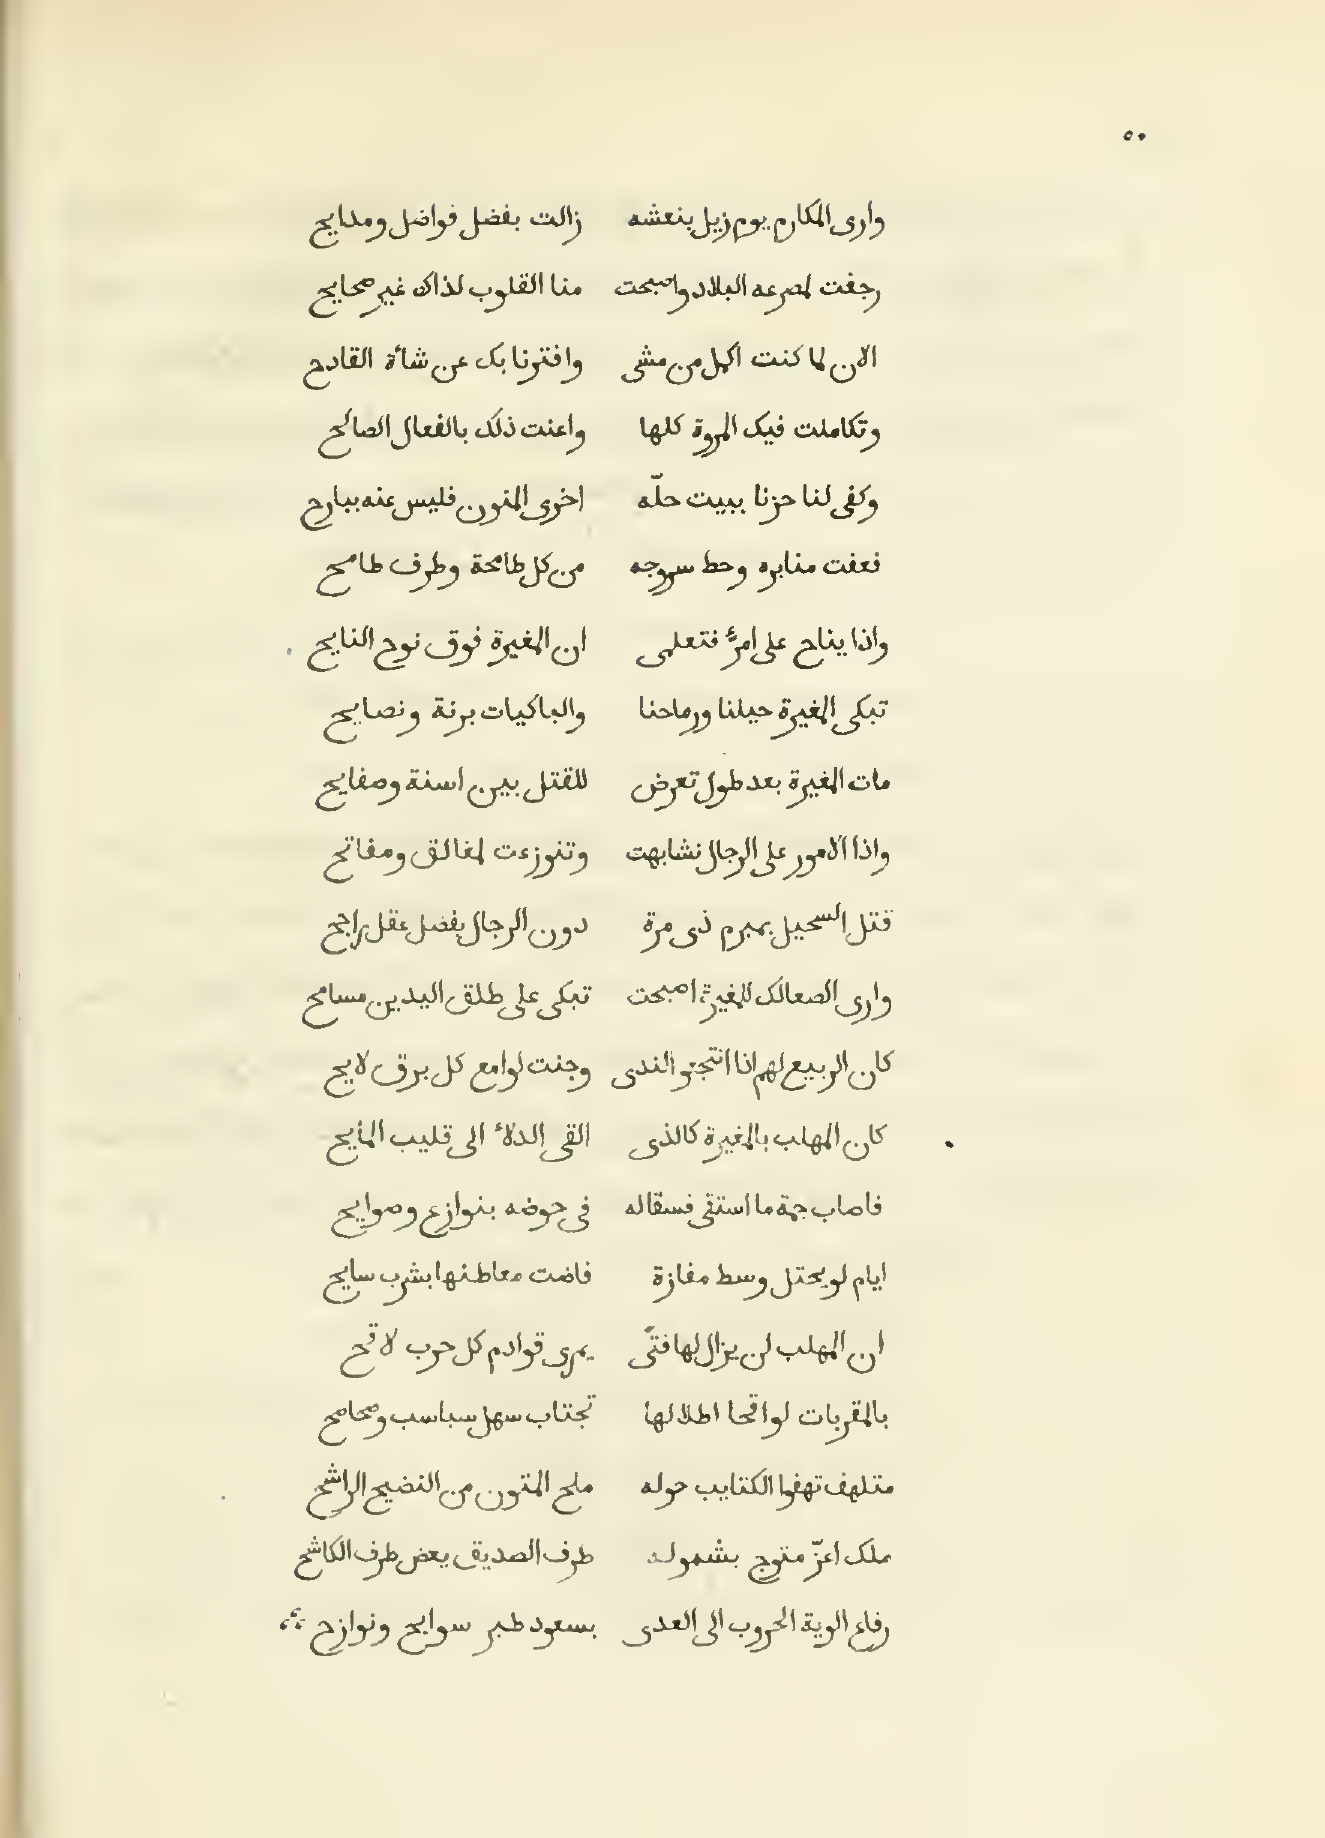 ٥٠
وارى المكارم يوم زيل بنعشه زالت بفضل فواضل ومدايح
رجفت لمصرعه البلاد واصبحت منا القلوب لذاك غير صحايح
الان لما كنت اكمل من مشى وافترنا بك عن شأة القادح
وتكاملت فيك المروة كلها واعنت ذلك بالفعال الصالح
وكفى لنا حزنا ببيت حلّه اخرى المنون فليس عنه ببارح
فعفت منابره وحط سروجه من كل طامحة وطرف طامح
واذا يناح على امرئ فتعلمى ان المغيرة فوق نوح النايح
تبكى المغيرة خيلنا ورماحنا والباكيات برنة ونصايح
مات المغيرة بعد طول تعرض للقتل بين اسنة وصفايح
واذا الامور على الرجال تشابهت وتنوزعت لمغالق ومفاتح
قتل السحيل بمبرم ذى مرة دون الرجال بفضل عقل راجح
وارى الصعالك للمغيرة اصبحت تبكى على طلق اليدين مسامح
كان الربيع لهم اذا انتجعو الندى وجنت لوامع كل برق لايح
كان المهلب بالمغيرة كالذى القى الدلاء الى قليب المايح
فاصاب جمة ما استقى فسقاله فى حوضه بنوازع وصوايح
ايام لو يحتل وسط مفازة فاضت معاطنها بشرب سايح
ان المهلب لن يزال لها فتًى يمرى قوادم كل حرب لاقح
بالمقربات لواقحا اطلالها تجتاب سهل سباسب وصحاصح
متلهف تهفوا الكتايب حوله ملح المتون من النضيح الراشح
ملك اعزّ متوج بشموله طرف الصديق يعض طرف الكاشح
رفاع الوية الحروب الى العدى بسعود طير سوايح ونوازح